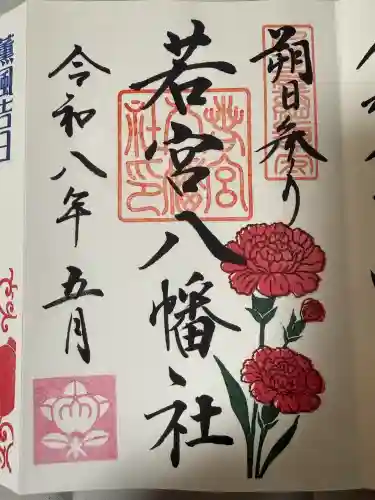 朔日参り
若宮八幡社
令和八年 五月
薫風吉日